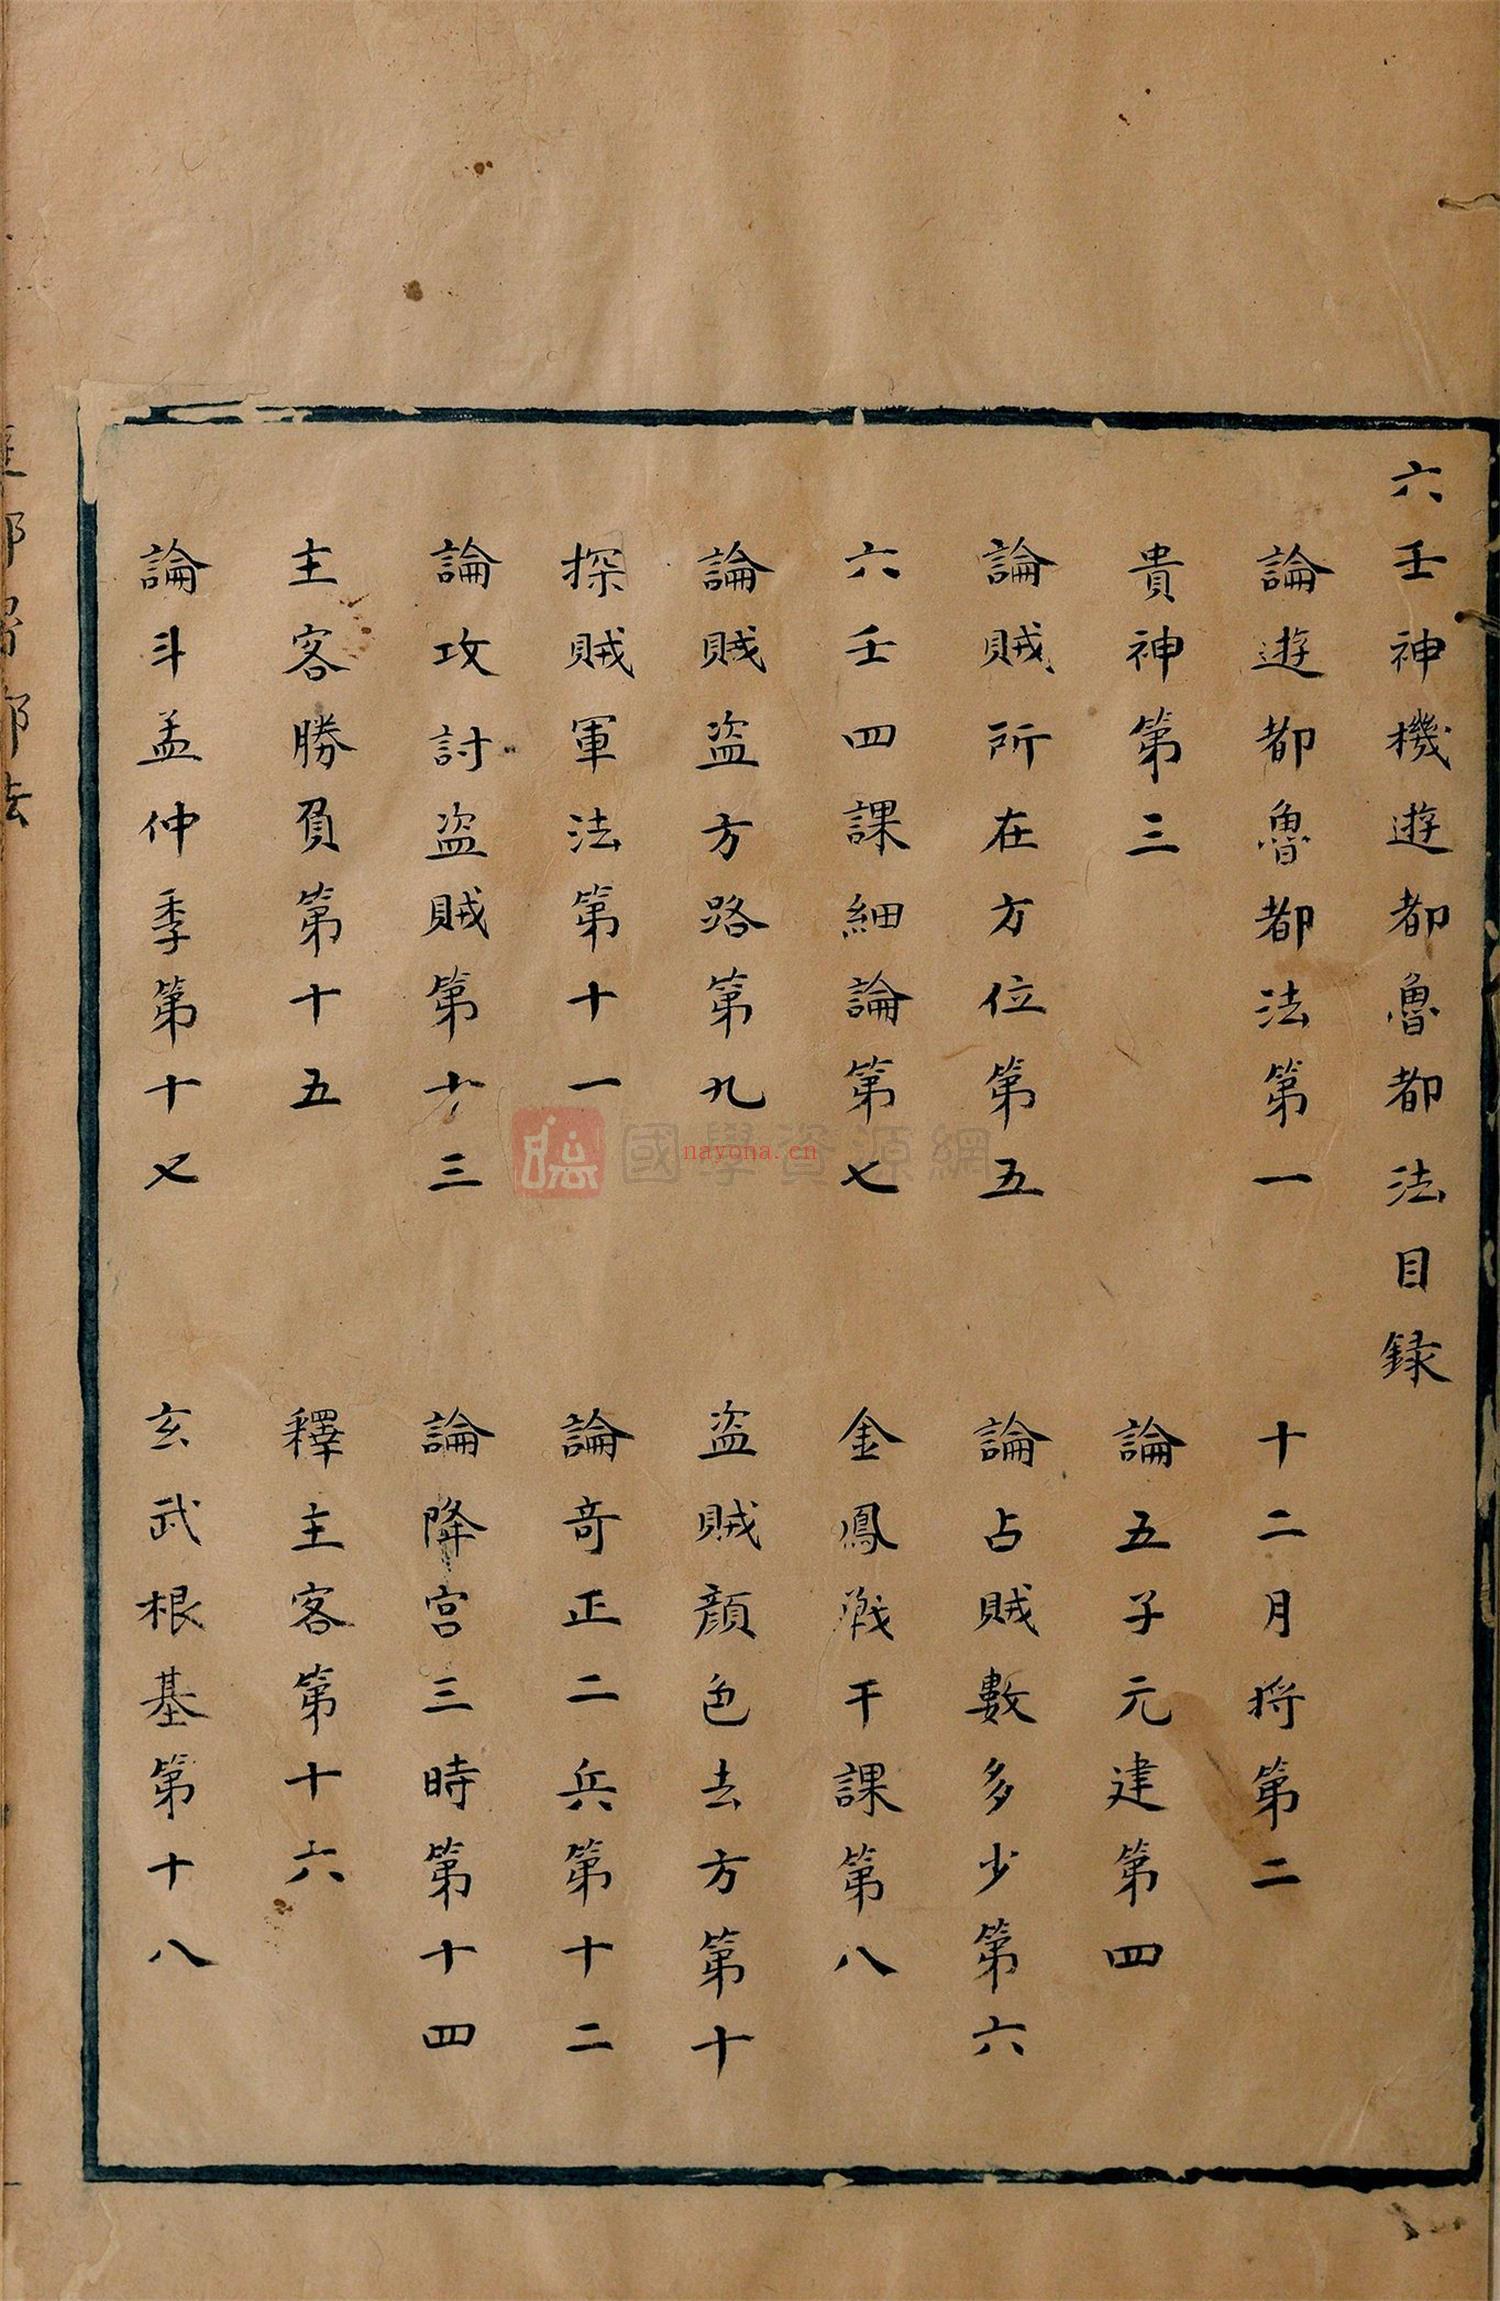 六壬神機遊都魯都法目録
論遊都魯都法第一
十二月将第二
貴神第三
論五子元建第四
論賊所在方位第五
論占賊數多少第六
六壬四課細論第七
金鳳戰干課第八
論賊盗方路第九
盗賊顔色去方第十
探賊軍法第十一
論竒正二兵第十二
論攻討盗賊第十三
論降宫三時第十四
主客勝負第十五
釋主客第十六
論斗孟仲季第十七
玄武根基第十八
國學資源網
nayona.cn